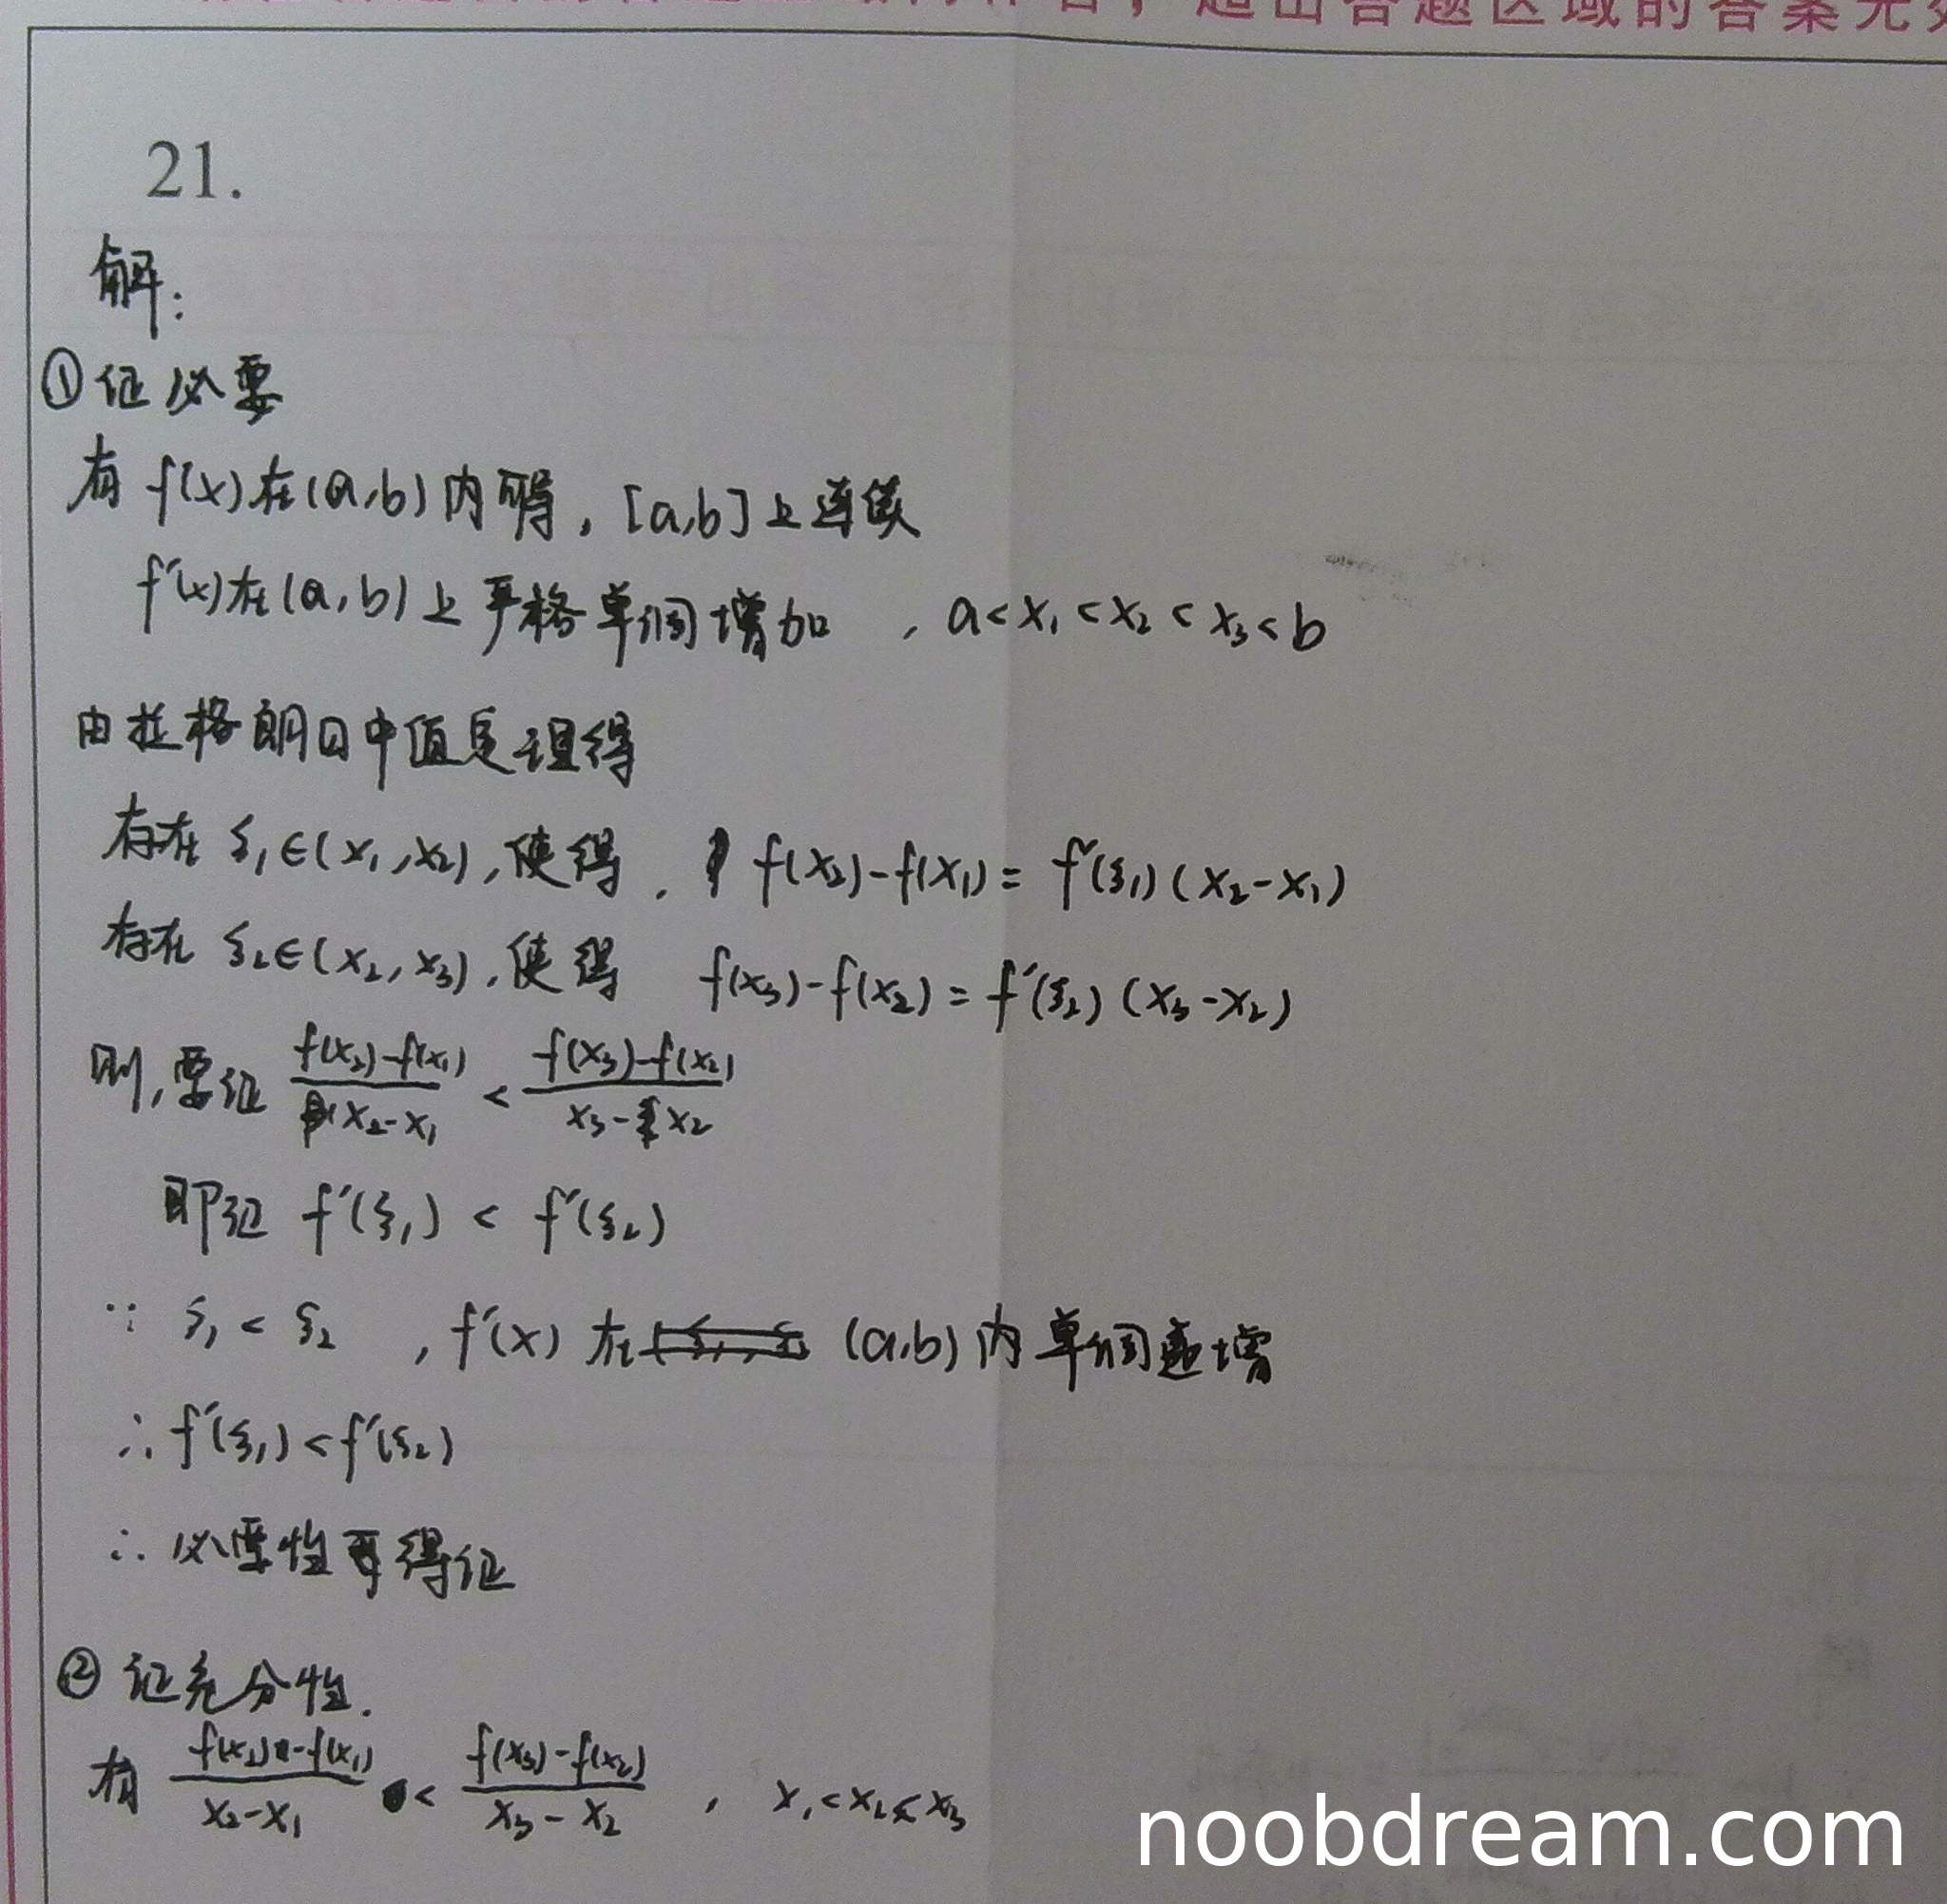 超出答题区域的答案无效
21.
解:
①证必要
有 f(x)在(a,b)内可导, [a,b]上连续
f'(x)在(a,b)上严格单调增加 , a<x₁<x₂<x₃<b
由拉格朗日中值定理得
存在 ξ₁∈(x₁,x₂),使得, f(x₂)-f(x₁)= f'(ξ₁)(x₂-x₁)
存在 ξ₂∈(x₂,x₃),使得 f(x₃)-f(x₂)=f'(ξ₂)(x₃-x₂)
则,要证 (f(x₂)-f(x₁))/(x₂-x₁) < (f(x₃)-f(x₂))/(x₃-x₂)
即证 f'(ξ₁) < f'(ξ₂)
∵ ξ₁<ξ₂ , f'(x) 在 (a,b)内单调递增
∴ f'(ξ₁)<f'(ξ₂)
∴ 必要性得证
② 证充分性.
有 (f(x₂)-f(x₁))/(x₂-x₁) < (f(x₃)-f(x₂))/(x₃-x₂) , x₁<x₂<x₃
noobdream.com